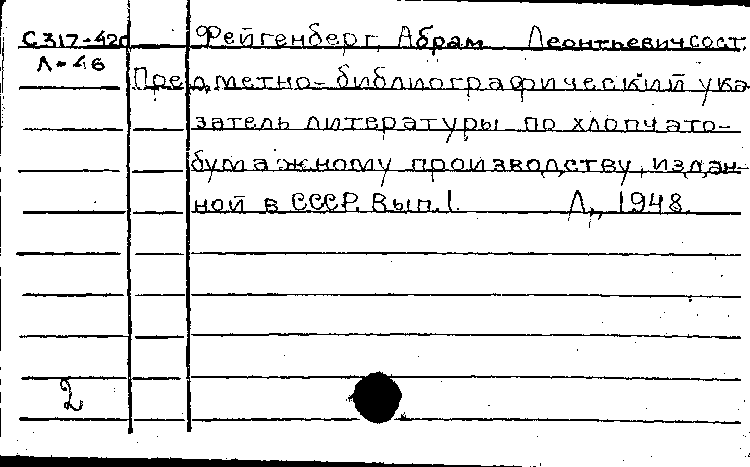 С317-420 Фейгенберг, Абрам Леонтьевич сост.
Л-46 Предметно-библиографический ука
затель литературы по хлопчато-
бумажному производству, издан-
ной в СССР. Вып. 1. Л., 1948.
2